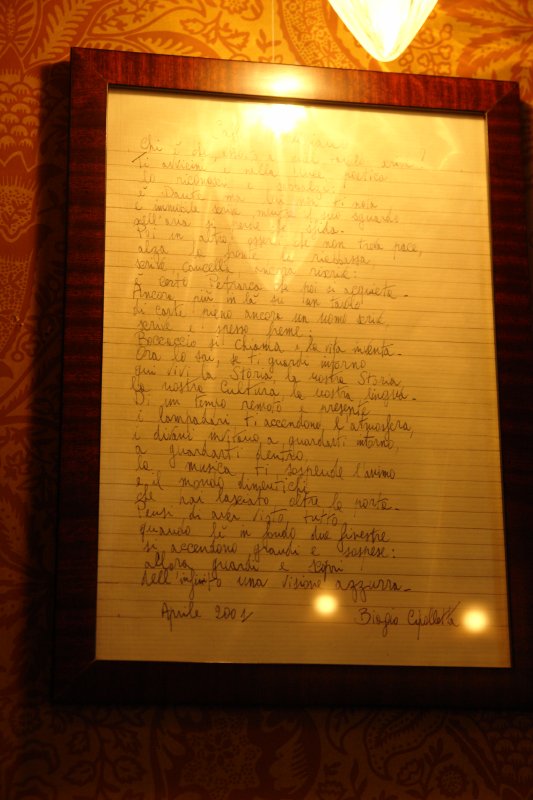 Chi è
Ti avvicini e nella luce poetica
lo riconosci e
è Dante ma
è immobile senza
nell'aria si perde la sfida.
Poi un altro essere che non trova pace,
alza la fronte la riabbassa
scrive, cancella, ancora riscrive:
è certo Petrarca che poi si acquieta.
Ancora più in là su un tavolo
di carte pieno ancora un uomo scrive,
scrive e spesso freme:
Boccaccio si chiama, la vita inventa.
Ora lo sai, se ti guardi intorno
qui vivi la Storia, la nostra Storia,
la nostra Cultura, la nostra lingua.
Di un tempo remoto e presente
i lampadari ti accendono l'atmosfera,
i divani invitano a guardarti intorno,
a guardarti dentro,
la musica ti sospende l'animo
e il mondo dimentichi
che hai lasciato oltre le porte.
Pensi di aver visto tutto
quando lì in fondo due finestre
si accendono grandi e sospese:
allora guardi e scopri
dell'infinito una visione azzurra.
Aprile 2001
Biagio Cipolletta